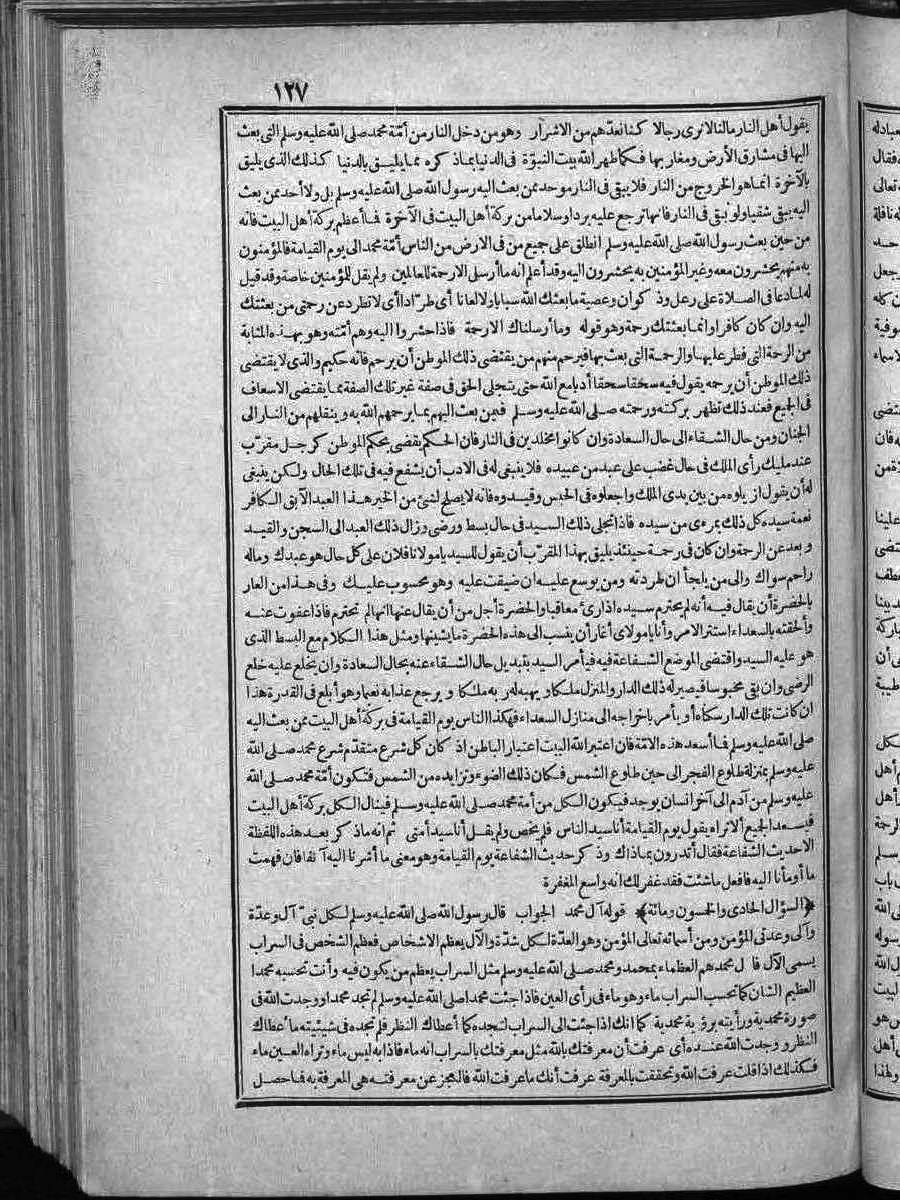 ١٢٧
يقول أهل النار مالنا لانرى رجالا كنا نعدّهم من الاشرار وهو من دخل النار من أمّة محمد صلى الله عليه وسلم التى بعث
اليها فى مشارق الأرض ومغاربها فكما طهر الله بيت النبوّة فى الدنيا بماذ كره مما يليق بالدنيا كذلك الذى يليق
بالآخرة انما هو الخروج من النار فلا يبقى فى النار موحد ممن بعث اليه رسول الله صلى الله عليه وسلم بل ولا أحد ممن بعث
اليه يبقى شقيا ولو بقى فى النار فانها ترجع عليه بردا وسلاما من بركة أهل البيت فى الآخرة فما أعظم بركة أهل البيت فانه
من حين بعث رسول الله صلى الله عليه وسلم انطلق على جميع من فى الارض من الناس أمّة محمد الى يوم القيامة فالمؤمنون
به منهم يحشرون معه وغير المؤمنين به يحشرون اليه وقد أعلم انه ما أرسل الا رحمة للعالمين ولم يقل للمؤمنين خاصة وقد قيل
له لما دعا فى الصلاة على رعل وذ كوان وعصية ما بعثك الله سبابا ولا لعانا أى طرّادا أى لا تطرد عن رحمتى من بعثتك
اليه وان كان كافرا وانما بعثتك رحمة وهو قوله وما أرسلناك الا رحمة فاذا حشروا اليه وهم أمّته وهو بهذه المثابة
من الرحمة التى فطر عليها والرحمة التى بعث بها فيرحم منهم من يقتضى ذلك الموطن أن يرحم فانه حكيم والذى لا يقتضى
ذلك الموطن أن يرحمه يقول فيه سحقا سحقا أدبا مع الله حتى يتجلى الحق فى صفة غير تلك الصفة مما يقتضى الاسعاف
فى الجميع فعند ذلك تظهر بركته ورحمته صلى الله عليه وسلم فيمن بعث اليهم بما يرحمهم الله به وينقلهم من النار الى
الجنان ومن حال الشقاء الى حال السعادة وان كانوا مخلدين فى النار فان الحكم يقضى بحكم الموطن كرجل مقرّب
عند مليك رأى الملك فى حال غضب على عبد من عبيده فلا ينبغى له فى الادب أن يشفع فيه فى تلك الحال ولكن ينبغى
له أن يقول ازيلوه من بين يدى الملك واجعلوه فى الحبس وقيدوه فانه لا يصلح لشئ من الخير هذا العبد الآبق الكافر
نعمة سيده كل ذلك بمرءى من سيده فاذا تجلى ذلك السيد فى حال بسط ورضى وزال ذلك العبد الى السجن والقيد
وبعد عن الرحمة وان كان فى رحمة حينئذ يليق بهذا المقرّب أن يقول للسيد يا مولانا فلان على كل حال هو عبدك وماله
راحم سواك والى من يلجأ ان طردته ومن يوسع عليه ان ضيقت عليه وهو محسوب عليك وفى هذا من العار
بالحضرة أن يقال فيه أنه لم يحترم سيده اذا رئ معاقبا والحضرة أجل من أن يقال عنها انها لم تحترم فاذا عفوت عنه
وألحقته بالسعداء استتر الامر وأنا يا مولاى أغار أن ينسب الى هذه الحضرة ما يشينها ومثل هذا الكلام مع البسط الذى
هو عليه السيد واقتضى الموضع الشفاعة فيه فيأمر السيد بتبديل حال الشقاء عنه بحال السعادة وان يخلع عليه خلع
الرضى وان بقى محبوسا فيصير له ذلك الدار والمنزل ملكا ويهبه له ربه ملكا ويرجع عذابه نعيما وهو أبلغ فى القدرة هذا
ان كانت تلك الدار سكناه أو يأمر باخراجه الى منازل السعداء فهكذا الناس يوم القيامة فى بركة أهل البيت ممن بعث اليه
صلى الله عليه وسلم فما أسعد هذه الامّة فان اعتبر الله البيت اعتبار الباطن اذ كان كل شرع متقدّم شرع محمد صلى الله
عليه وسلم بمنزلة طلوع الفجر الى حين طلوع الشمس فكان ذلك الضوء وتزايده من الشمس فتكون أمّة محمد صلى الله
عليه وسلم من آدم الى آخر انسان يوجد فيكون الكل من أمة محمد صلى الله عليه وسلم فينال الكل بركة أهل البيت
فيسعد الجميع ألا تراه يقول يوم القيامة أنا سيد الناس فلم يخص ولم يقل أنا سيد أمتى ثم انه ماذ كر بعد هذه اللفظة
الا حديث الشفاعة فقال أتدرون بماذاك وذ كر حديث الشفاعة يوم القيامة وهو معنى ما أشرنا اليه آنفا فان فهمت
ما أومأنا اليه فافعل ما شئت فقد غفر لك انه واسع المغفرة
﴿السؤال الحادى والخمسون ومائة﴾ قوله آل محمد الجواب قال رسول الله صلى الله عليه وسلم لكل نبىّ آل وعدّة
وآلى وعدتى المؤمن ومن أسمائه تعالى المؤمن وهو العدّة لكل شدّة والآل يعظم الاشخاص فعظم الشخص فى السراب
يسمى الآل فا ل محمد هم العظماء بمحمد ومحمد صلى الله عليه وسلم مثل السراب يعظم من يكون فيه وأنت تحسبه محمدا
العظيم الشان كما تحسب السراب ماء وهو ماء فى رأى العين فاذا جئت محمدا صلى الله عليه وسلم لم تجد محمدا ووجدت الله فى
صورة محمدية ورأيته برؤية محمدية كما انك اذا جئت الى السراب لتجده كما أعطاك النظر فلم تجده فى شيئيته ما أعطاك
النظر ووجدت الله عنده أى عرفت أن معرفتك بالله مثل معرفتك بالسراب انه ماء فاذا به ليس ماء وتراه العين ماء
فكذلك اذا قلت عرفت الله وتحققت بالمعرفة عرفت أنك ما عرفت الله فالعجز عن معرفته هى المعرفة به فما حصل